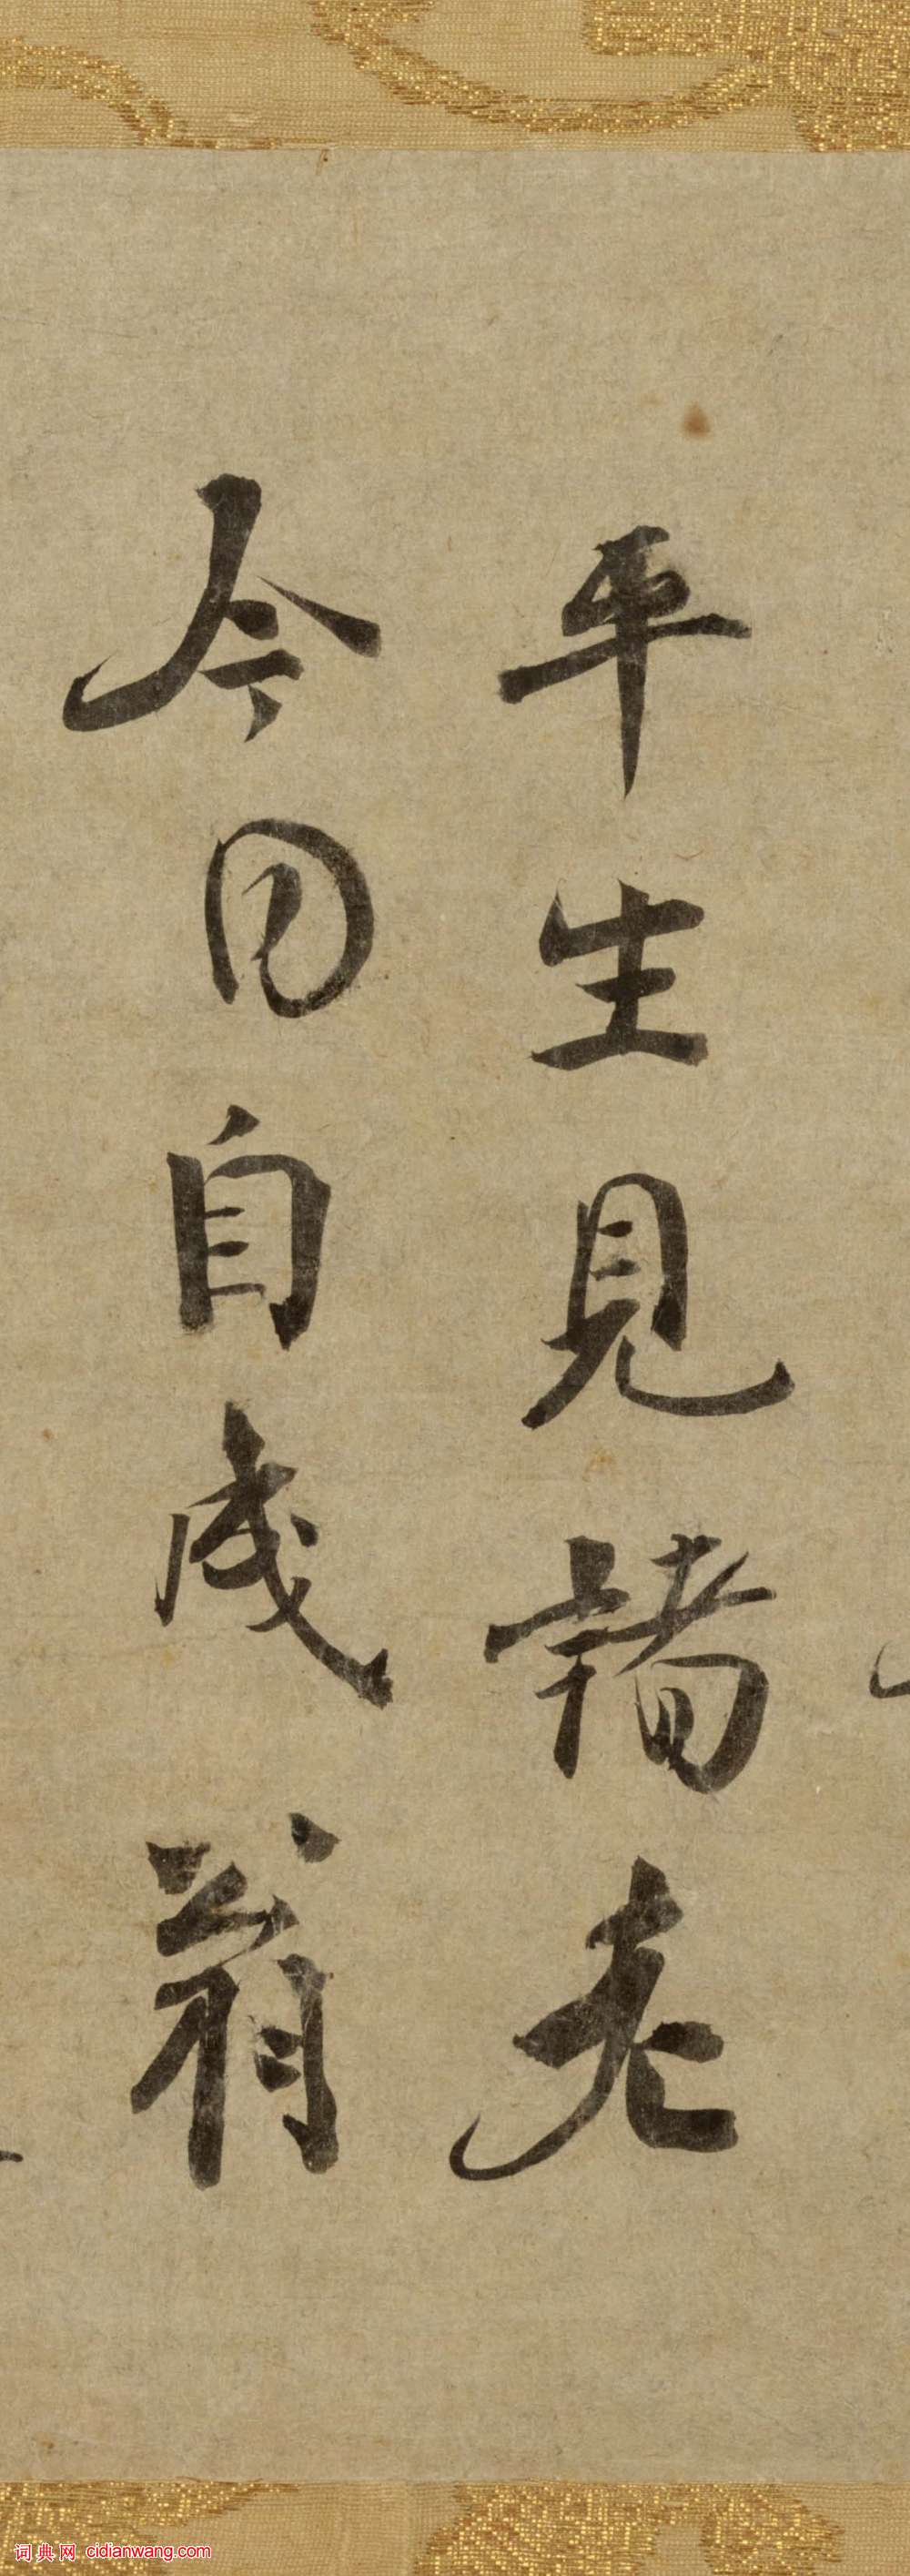 平生見諸老
今日自成翁
词典网 cidianwang.com